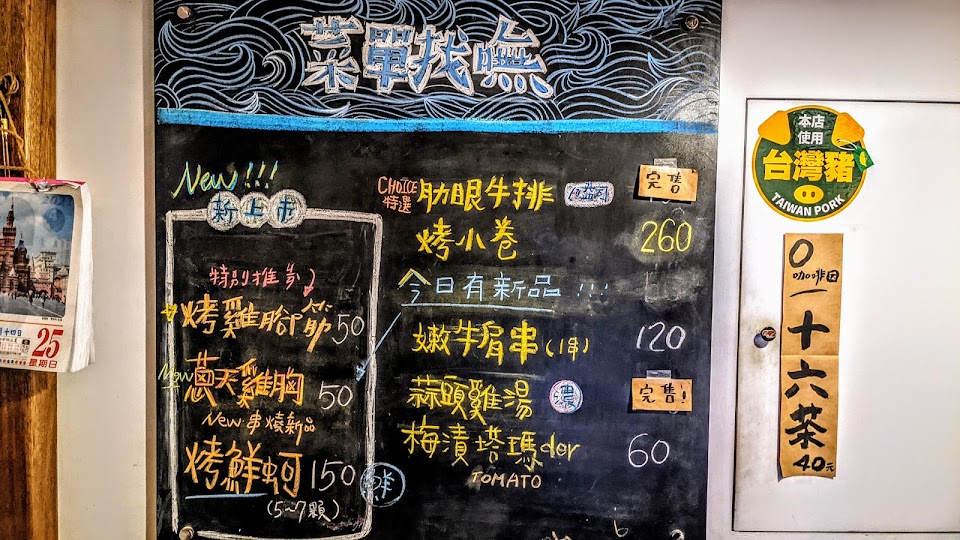 菜單找嘸
New!!!
新上市
特別推薦
烤雞腳筋 50
New 蔥天雞胸 50
New 串燒新品
烤鮮蚵 150 鮮
(5~7顆)
CHOICE
特選
肋眼牛排 完售
烤小卷 260
今日有新品!!!
嫩牛肩串(1串) 120
蒜頭雞湯 濃 完售!
梅漬塔瑪der 60
TOMATO
本店
使用
台灣豬
TAIWAN PORK
0
咖啡因
一十六茶
40元
月十四日
25
星期日